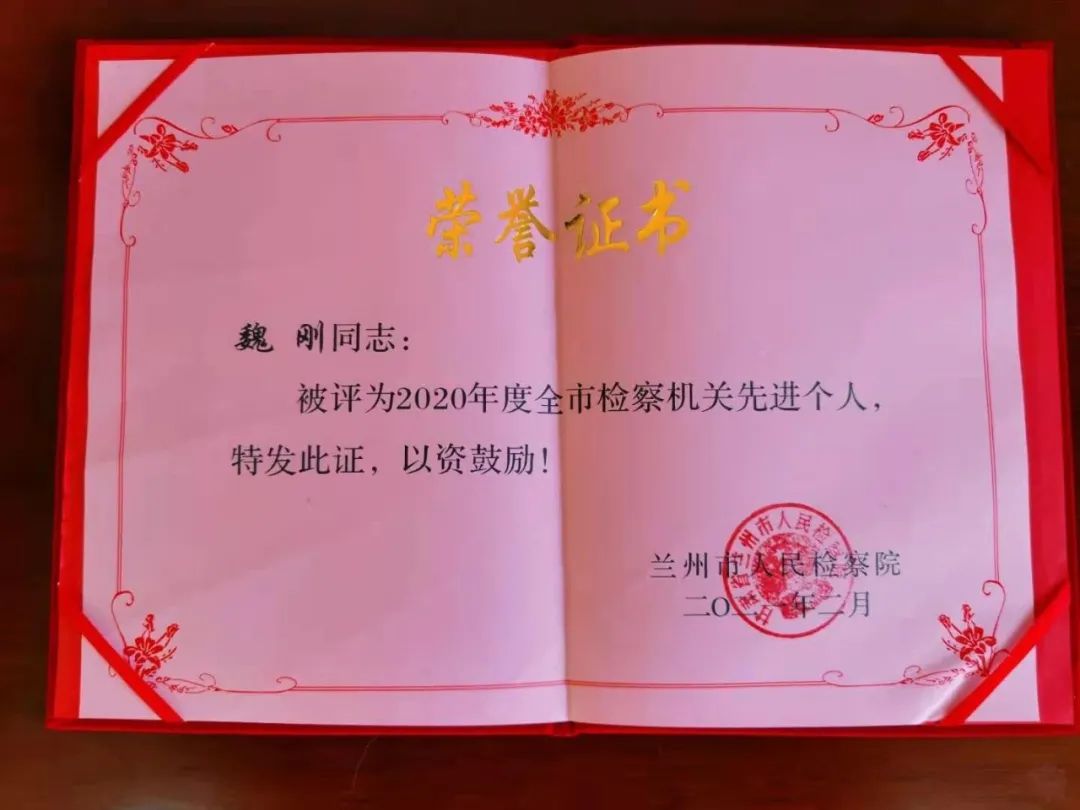 荣誉证书
魏 刚同志：
被评为2020年度全市检察机关先进个人，
特发此证，以资鼓励！
兰州市人民检察院
二〇二一年二月
甘肃省兰州市人民检